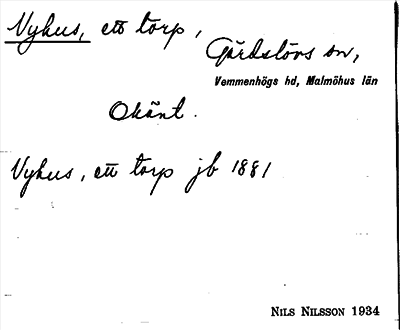 Nyhus, ett torp,
Gärdslövs sn,
Vemmenhögs hd, Malmöhus län
Okänt.
Nyhus, ett torp jb 1881
NILS NILSSON 1934